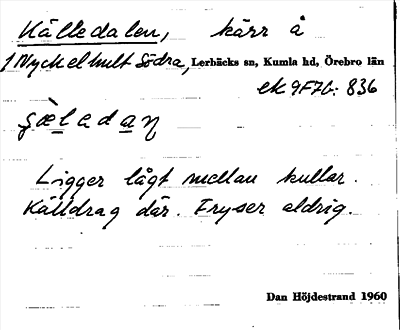 Källedalen, kärr å
1 Nyckelhult Södra, Lerbäcks sn, Kumla hd, Örebro län
ek 9F7b: 836
Ligger lågt mellan kullar.
Källdrag där. Fryser aldrig.
Dan Höjdestrand 1960